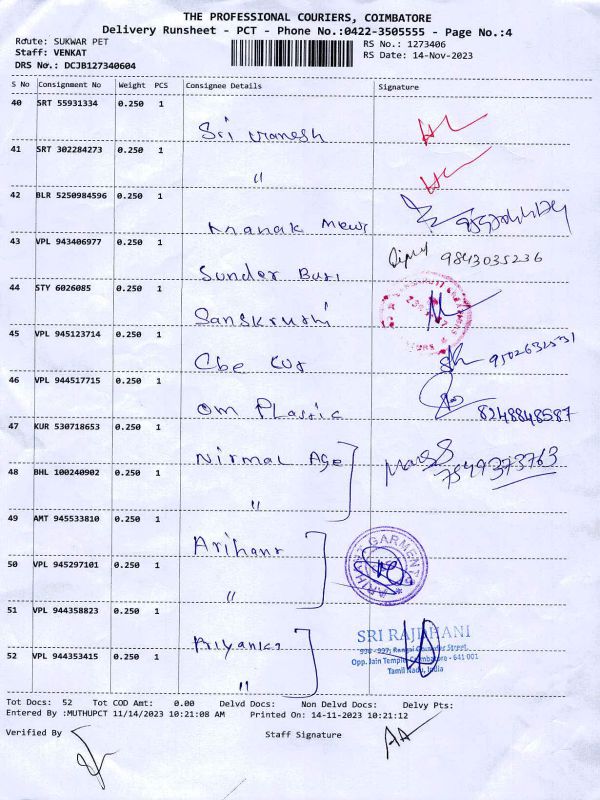 THE PROFESSIONAL COURIERS, COIMBATORE
Delivery Runsheet - PCT - Phone No.:0422-3505555 - Page No.:4
Route: SUKWAR PET
RS No.: 1273406
Staff: VENKAT
RS Date: 14-Nov-2023
DRS No.: DCJB127340604
S No Consignment No Weight PCS Consignee Details Signature
40 SRT 55931334 0.250 1
Sri
41 SRT 302284273 0.250 1
"
42 BLR 5250984596 0.250 1
43 VPL 943406977 0.250 1
9843035236
Sunder
44 STY 6026085 0.250 1
Sanskruthi
45 VPL 945123714 0.250 1
Cbe
46 VPL 944517715 0.250 1
Om Plastic
8248848587
47 KUR 530718653 0.250 1
Nirmal Age
7549373763
48 BHL 100240902 0.250 1
"
49 AMT 945533810 0.250 1
Arihant
ARIHANT GARMENTS
50 VPL 945297101 0.250 1
"
51 VPL 944358823 0.250 1
Priyanka
SRI RAJDHANI
996 - 997, Rangai Gowder Street,
Opp. Jain Temple, Coimbatore - 641 001
Tamil Nadu, India
52 VPL 944353415 0.250 1
"
Tot Docs: 52 Tot COD Amt: 0.00 Delvd Docs: Non Delvd Docs: Delvy Pts:
Entered By :MUTHUPCT 11/14/2023 10:21:08 AM Printed On: 14-11-2023 10:21:12
Verified By Staff Signature